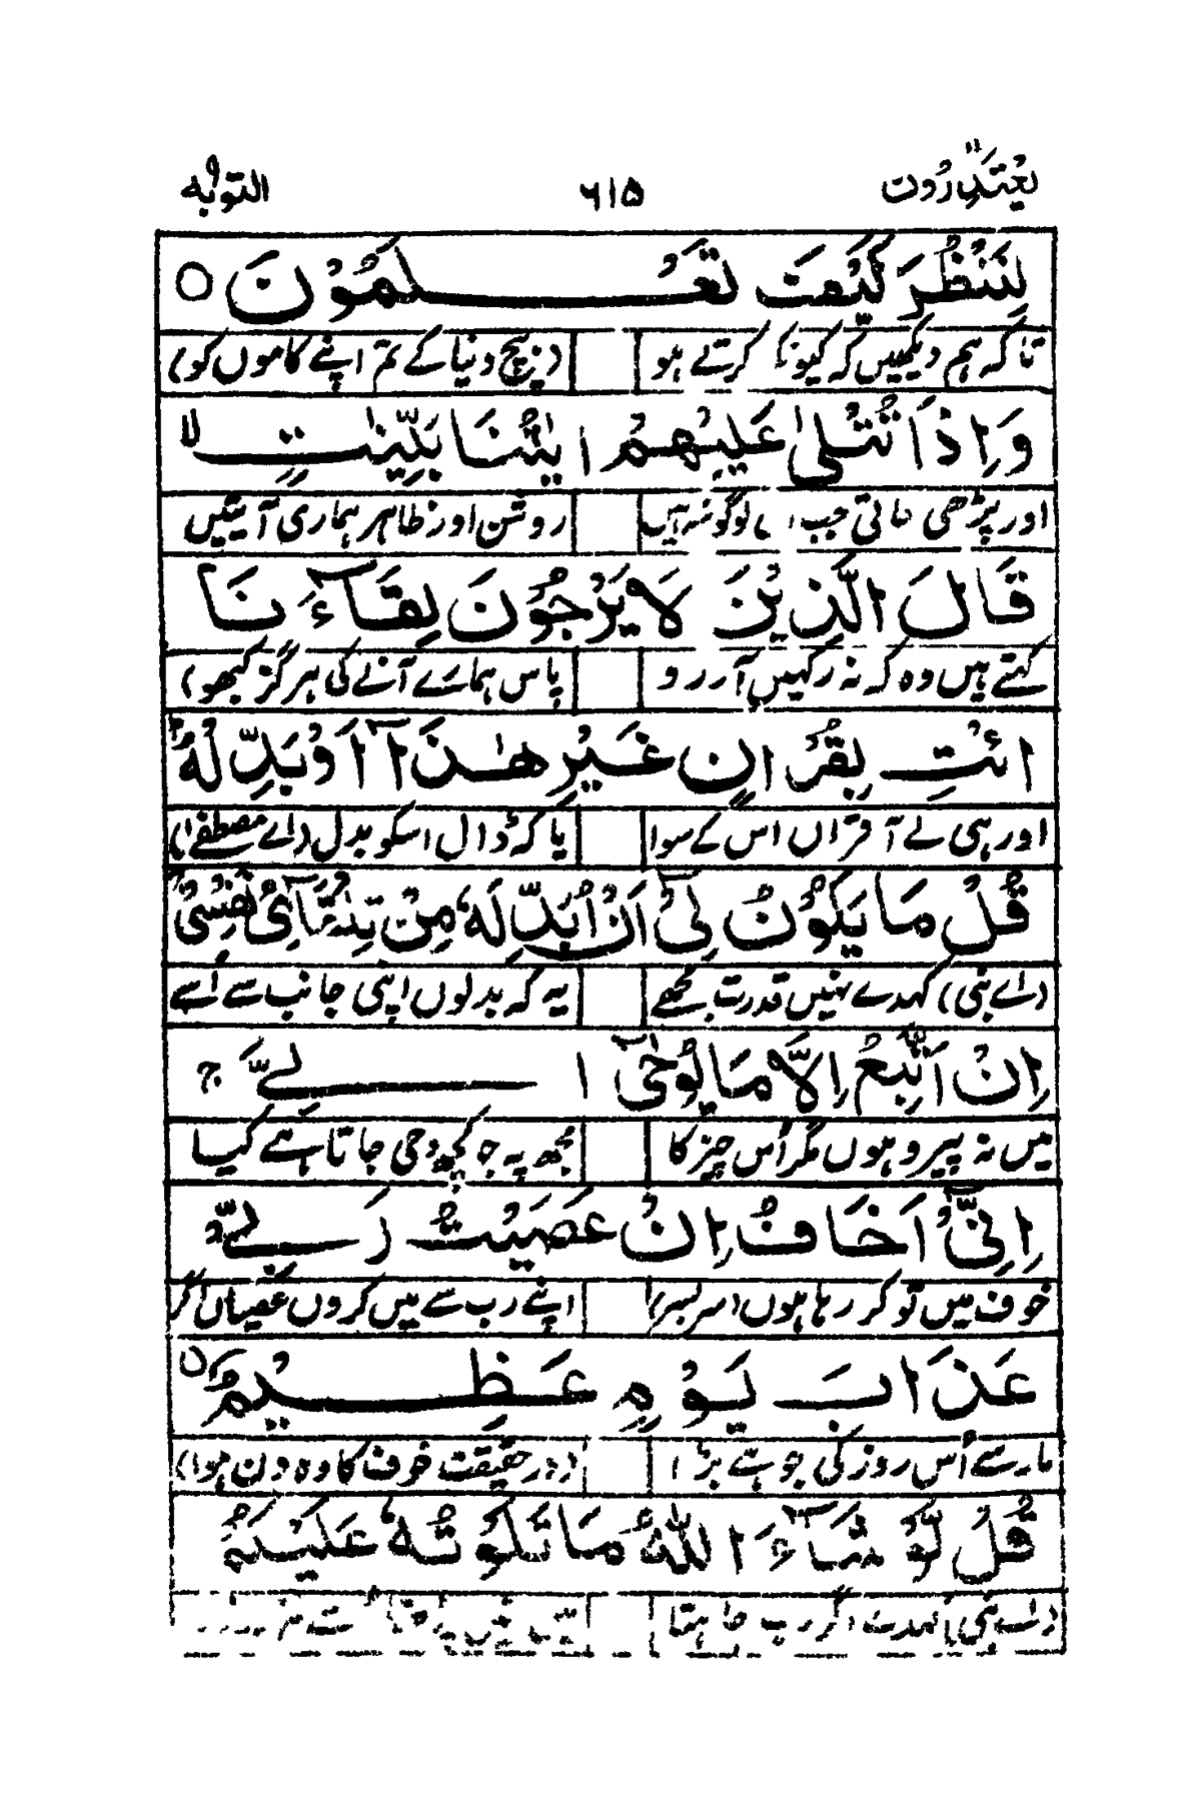 یعتذرون ۱۱ ۶۱۵ التوبہ ۹
لِنَنْظُرَ كَيْفَ تَعْمَلُوْنَ ○
تا کہ ہم دیکھیں کہ کیونکر کرتے ہو (بیچ دنیا کے تم اپنے کاموں کو)
وَاِذَا تُتْلٰى عَلَيْهِمْ اٰيٰتُنَا بَيِّنٰتٍ ۙ
اور پڑھی جاتی جب لوگوں پہ ہیں روشن اور ظاہر ہماری آیتیں
قَالَ الَّذِيْنَ لَا يَرْجُوْنَ لِقَآءَنَا
کہتے ہیں وہ کہ نہ رکھیں آرزو پاس ہمارے آنے کی ہرگز کبھو)
ائْتِ بِقُرْاٰنٍ غَيْرِ هٰذَاۤ اَوْ بَدِّلْهُ ؕ
اور ہی لے آ قرآں اس کے سوا یا کہ ڈال اسکو بدل (اے مصطفےٰ)
قُلْ مَا يَكُوْنُ لِيْۤ اَنْ اُبَدِّلَهٗ مِنْ تِلْقَآئِ نَفْسِيْ ۚ
(اے نبی) کہدے نہیں قدرت مجھے یہ کہ بدلوں اپنی جانب سے اُسے
اِنْ اَتَّبِعُ اِلَّا مَا يُوْحٰۤى اِلَيَّ ۚ
میں نہ پیرو ہوں مگر اُس چیز کا مجھ پہ جو کچھ وحی جاتا ہے کیا
اِنِّيْۤ اَخَافُ اِنْ عَصَيْتُ رَبِّيْ
خوف میں تو کر رہا ہوں (سر بسر) اپنے رب سے میں کروں عصیاں اگر
عَذَابَ يَوْمٍ عَظِيْمٍ
مار سے اُس روز کی جو ہے بڑا (در حقیقت خوف کا وہ دن ہوا)
قُلْ لَّوْ شَآءَ اللّٰهُ مَا تَلَوْتُهٗ عَلَيْكُمْ
(اے نبی) کہدے اگر رب چاہتا